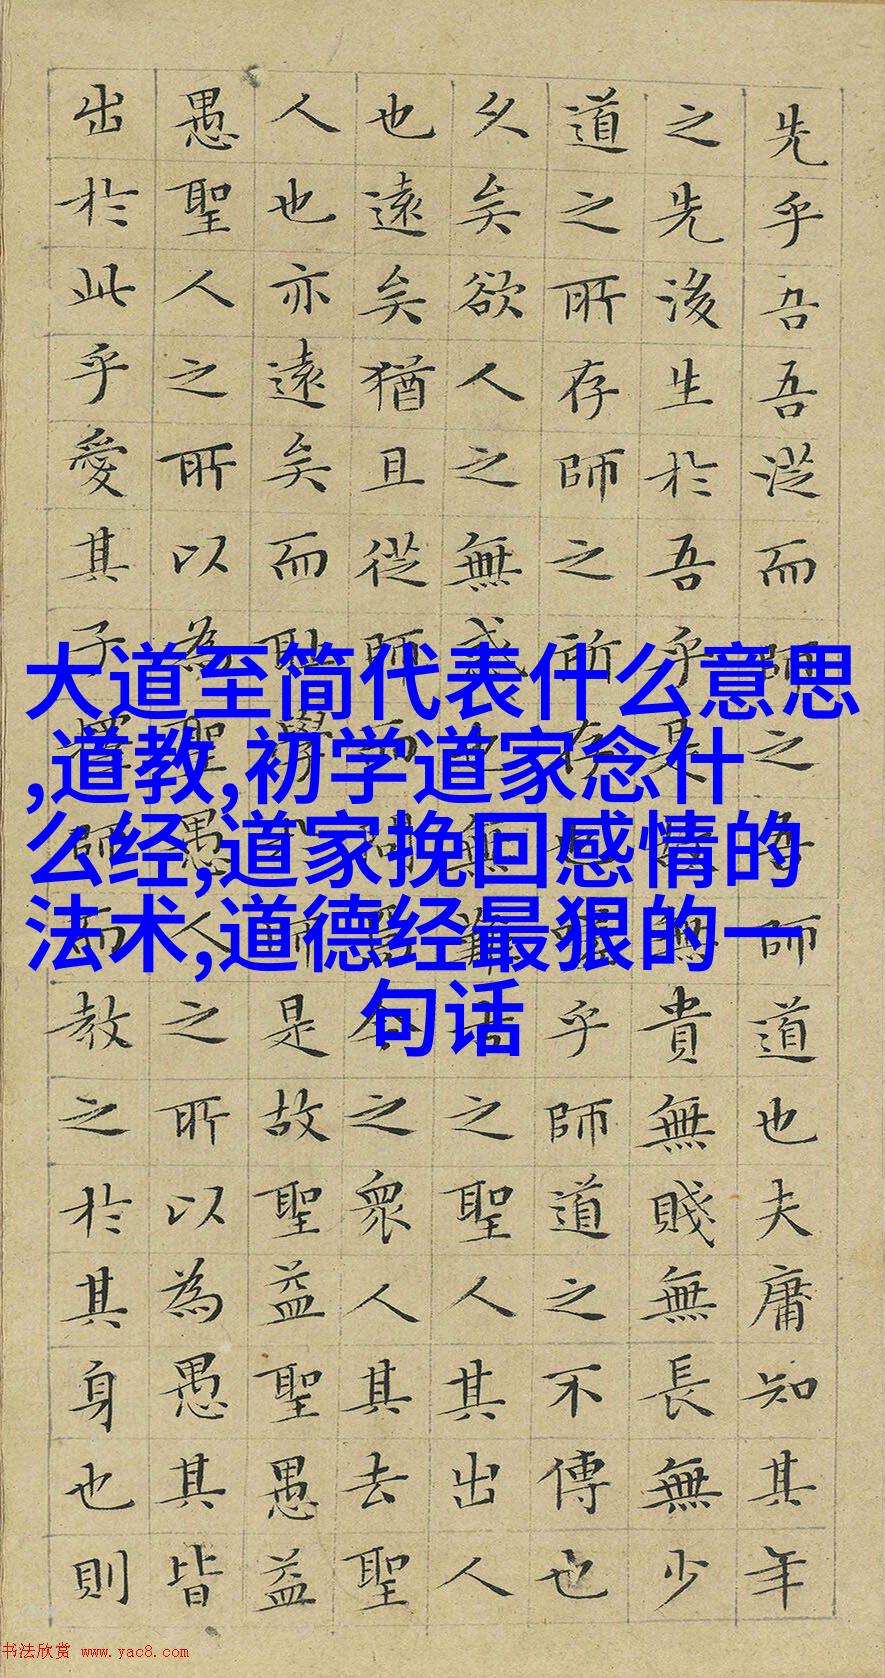 先乎吾吾從而師之吾師道也夫庸知其年
之先後生於吾乎是故無貴無賤無長無少
道之所存師之所存也嗟乎師道之不傳也
久矣欲人之無惑也無難古之聖人其出人
也遠矣猶且從師而問焉今之衆人其去聖
人也亦遠矣而恥學於師是故聖益聖愚益
愚聖人之所以為聖愚人之所以為愚其皆
出於此乎愛其子擇師而教之於其身也則
大道至简代表什么意思
,道教,初学道家念什
么经,道家挽回感情的
法术,道德经最狠的一
句话
书法欣赏 www.yac8.com